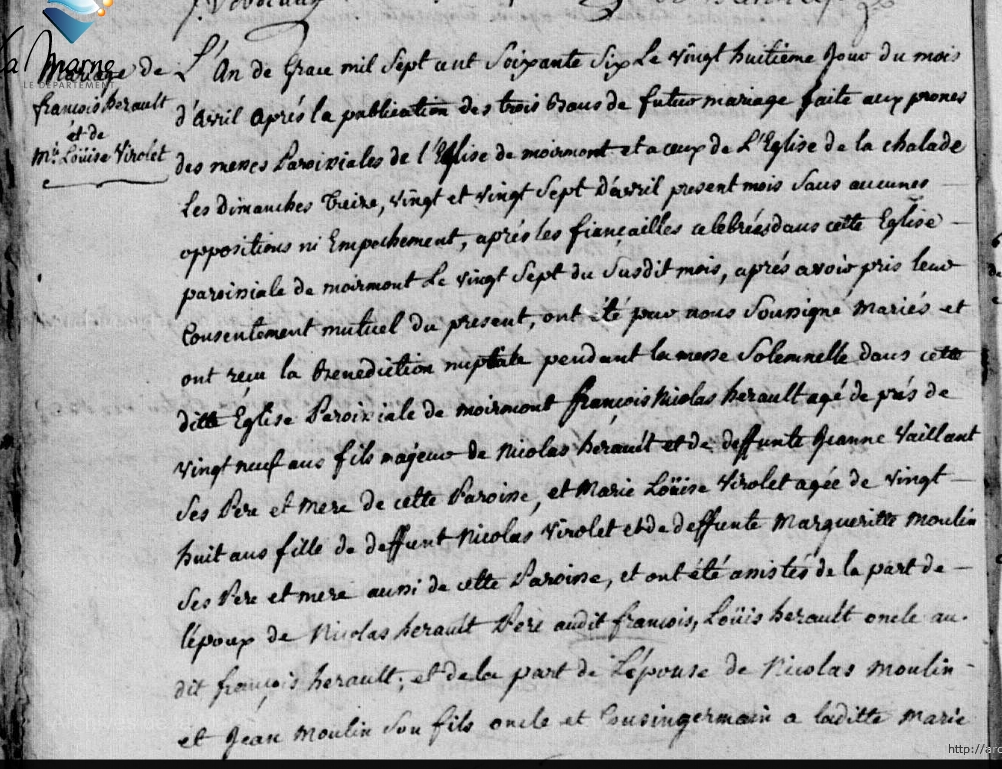 La Marne
LE DÉPARTEMENT
Mariage de
françois herault
et de
Mie Loüise Virolet
L'An de Grace mil Sept cent Soixante Six Le vingt huitieme Jour du mois
d'Avril Aprés la publication des trois Bans de futur mariage faite aux prones
des messes Paroissiales de l'Eglise de moirmont et a ceux de L'Eglise de la chalade
les dimanches treize, vingt et vingt Sept d'avril present mois Sans aucunes
oppositions ni Empechement, aprés les fiançailles celebrées dans cette Eglise
paroissiale de moirmont Le vingt Sept du Susdit mois, aprés avoir pris leur
Consentement mutuel du present, ont été par nous Soussigné Mariés et
ont reçu la Benediction nuptiale pendant la messe Solemnelle dans cette
ditte Église Paroissiale de moirmont françois Nicolas herault agé de prés de
vingt neuf ans fils majeur de Nicolas herault et de deffunte Jeanne Vaillant
Ses Pere et Mere de cette Paroisse, et Marie Loüise Virolet agée de vingt
huit ans fille de deffunt Nicolas Virolet et de deffunte Margueritte Moulin
Ses Pere et mere aussi de cette Paroisse, et ont été assistés de la part de
l'époux de Nicolas herault Pere audit françois, Loüis herault oncle au
dit françois herault; et de la part de L'épouse de Nicolas Moulin
et Jean Moulin Son fils oncle et Cousin germain a laditte Marie
http://arc